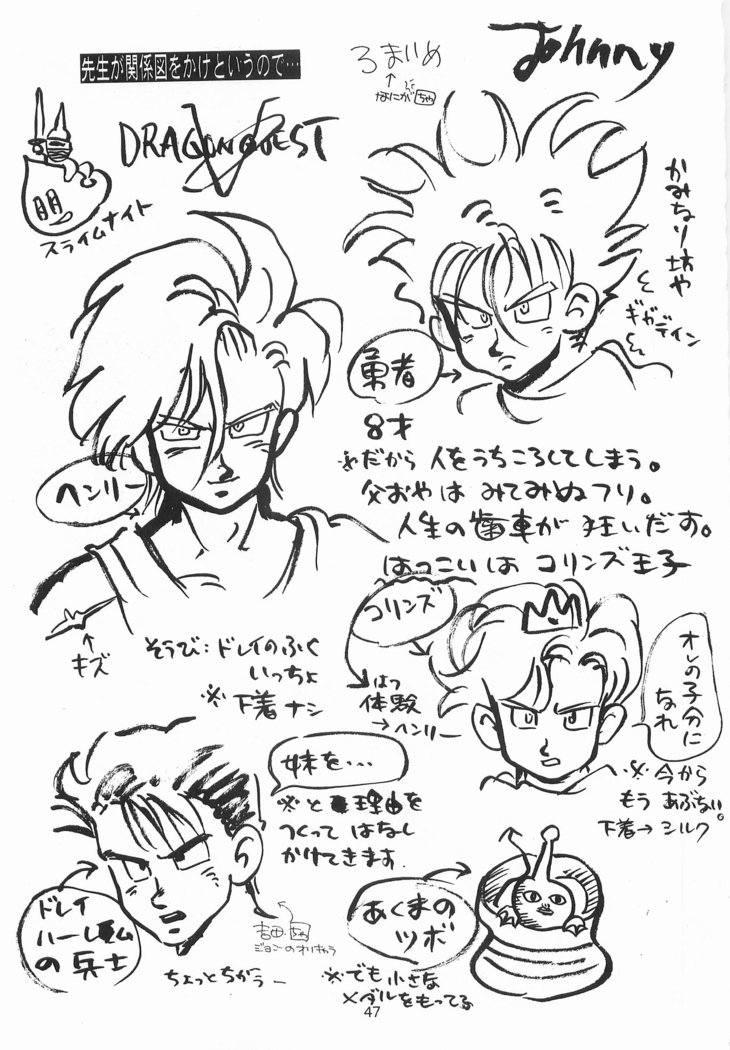 先生が関係図をかけというので…
Johnny
ろまりめ
DRAGON QUEST
V
スライムナイト
かみなり坊や
ギガデイン
勇者
8才
※だから 人をうちころしてしまう。
父おやは みてみぬフリ。
人生の歯車が 狂いだす。
はつこいは コリンズ王子
ヘンリー
キズ
そうび:ドレイのふく
いっちょ
※下着ナシ
コリンズ
はつ
体験
→ヘンリー
オレの子分に
なれ
※今から
もう あぶない。
下着→シルク
妹を…
※と 理由を
つくって はなし
かけてきます.
ドレイ
ハーレム
の兵士
ジョニーのオリキャラ
ちょっとちがうー
あくまの
ツボ
※でも 小さな
メダルをもってる
47